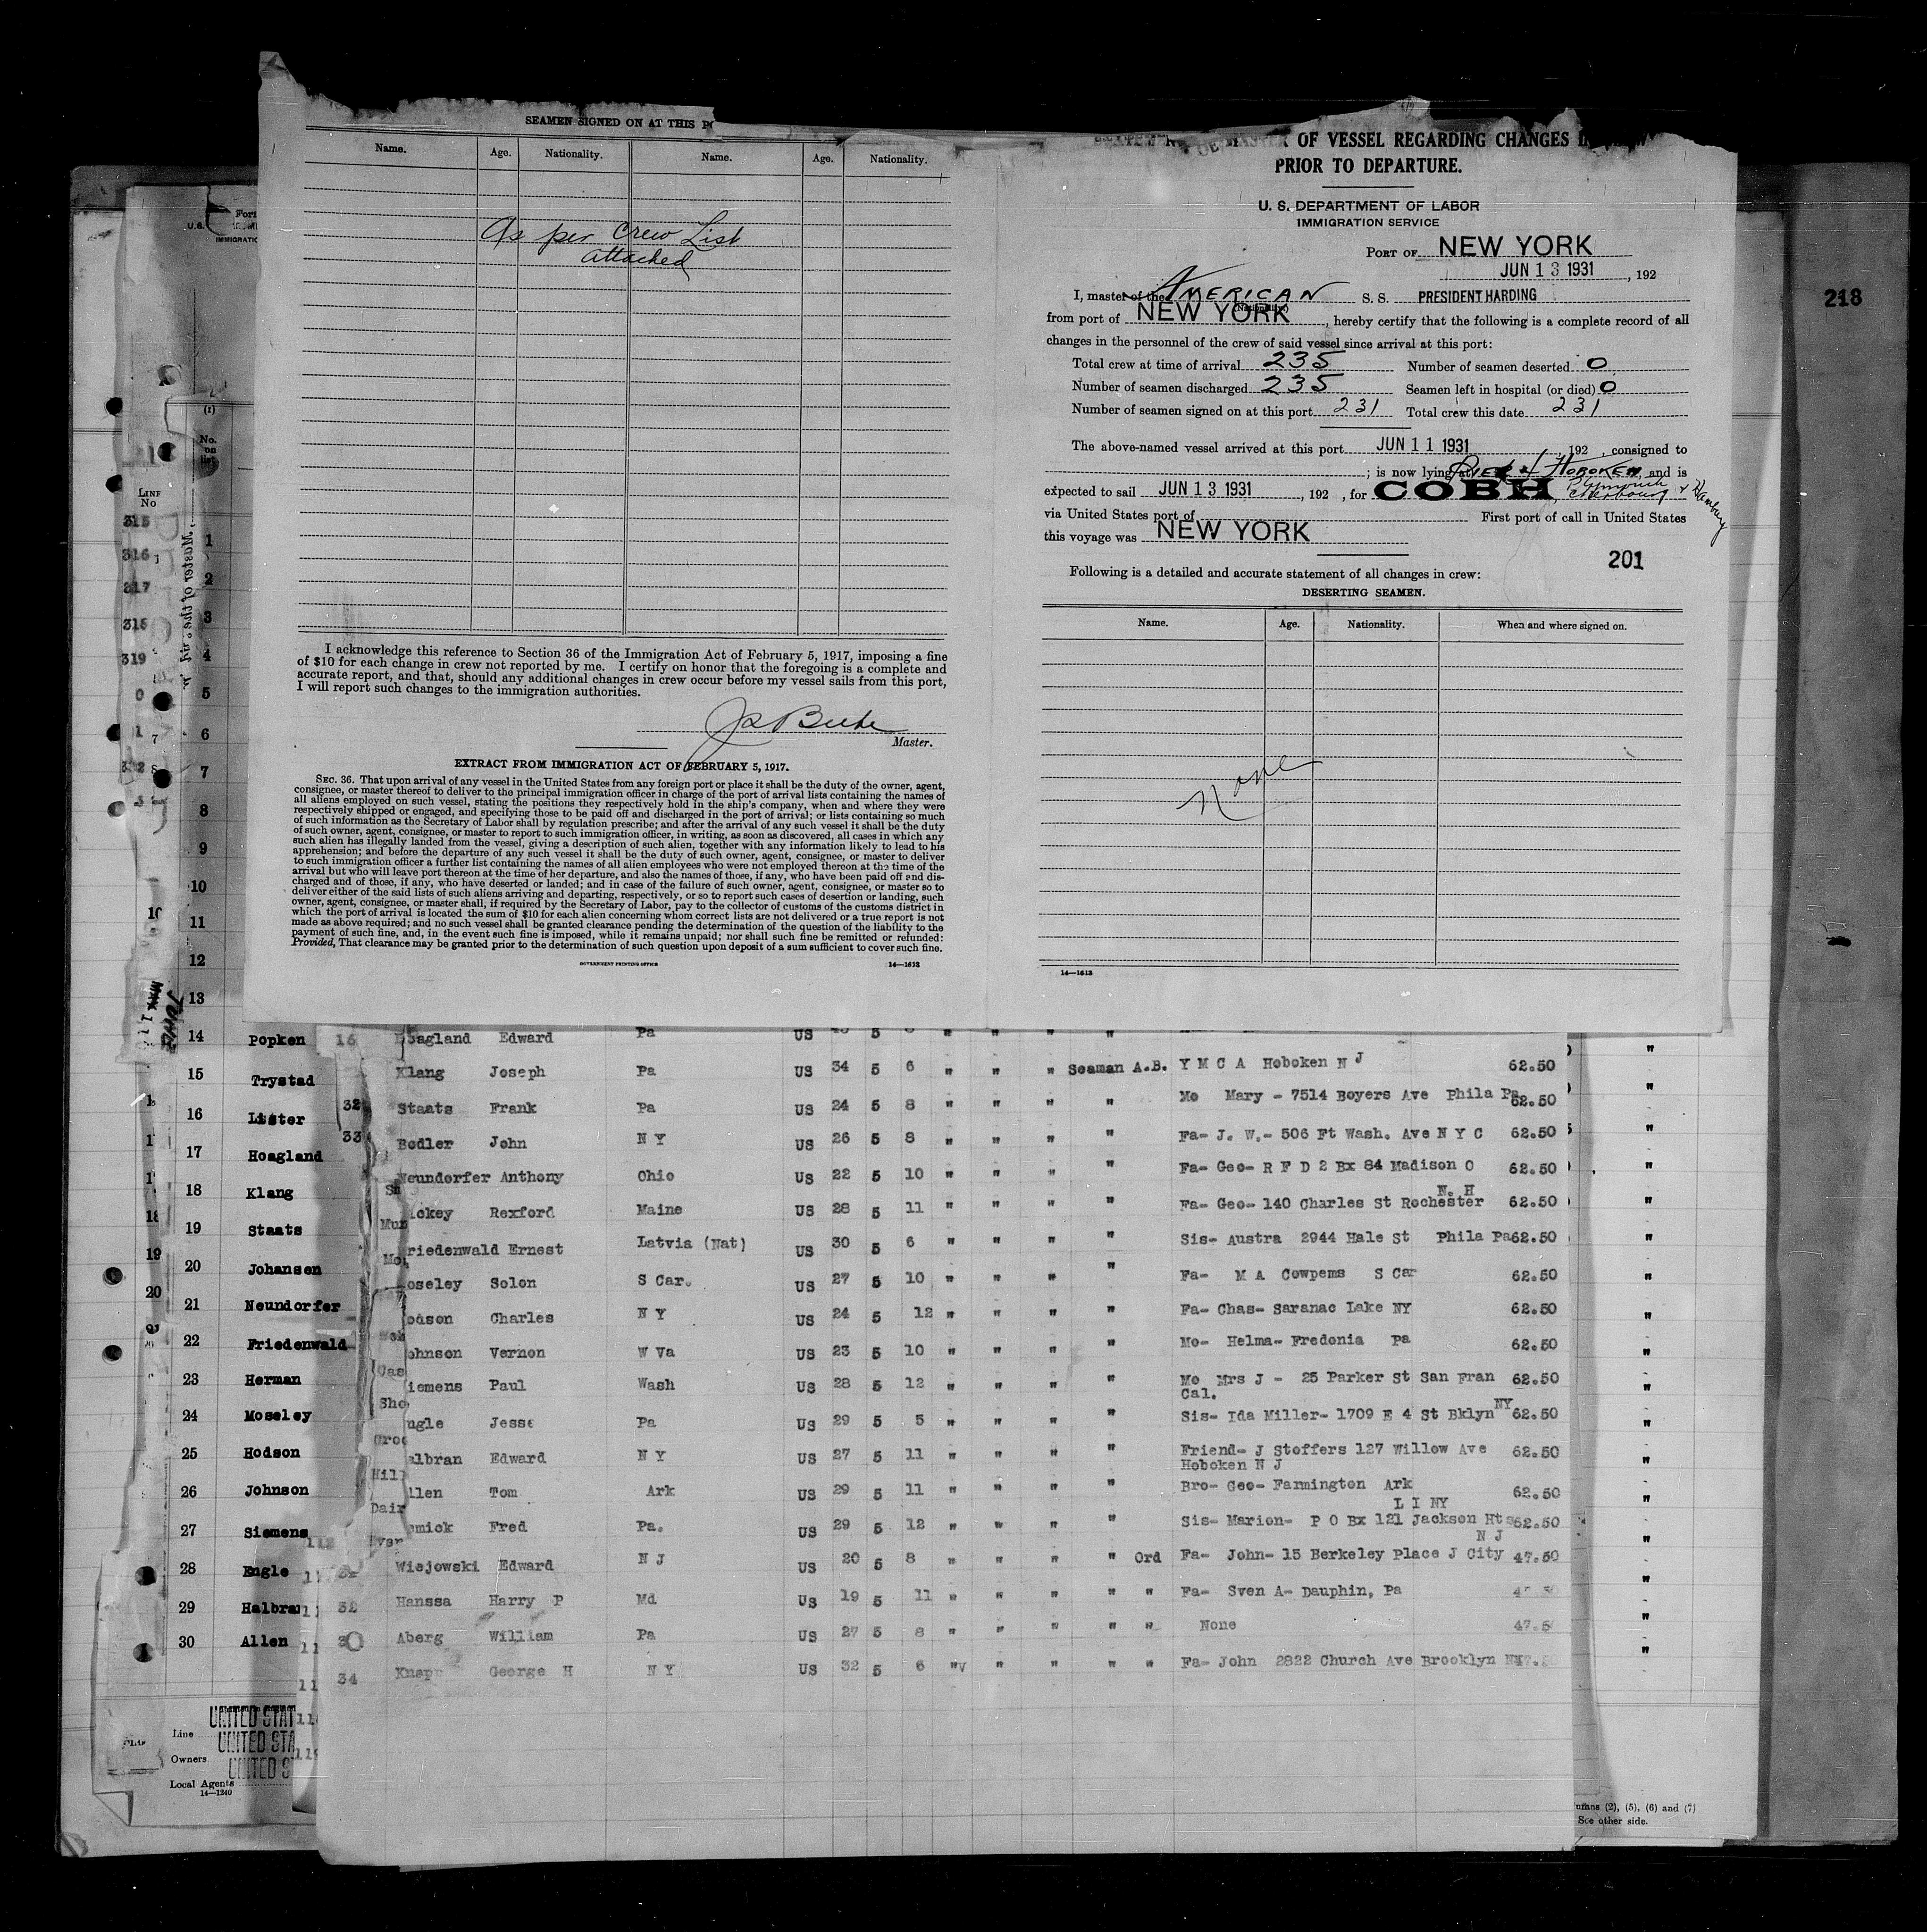 SEAMEN SIGNED ON AT THIS
Name. Age. Nationality. Name. Age. Nationality.
As per Crew List
attached
I acknowledge this reference to Section 36 of the Immigration Act of February 5, 1917, imposing a fine
of $10 for each change in crew not reported by me. I certify on honor that the foregoing is a complete and
accurate report, and that, should any additional changes in crew occur before my vessel sails from this port,
I will report such changes to the immigration authorities.
Master.
EXTRACT FROM IMMIGRATION ACT OF FEBRUARY 5, 1917.
SEC. 36. That upon arrival of any vessel in the United States from any foreign port or place it shall be the duty of the owner, agent,
consignee, or master thereof to deliver to the principal immigration officer in charge of the port of arrival lists containing the names of
all aliens employed on such vessel, stating the positions they respectively hold in the ship's company, when and where they were
respectively shipped or engaged, and specifying those to be paid off and discharged in the port of arrival; or lists containing so much
of such information as the Secretary of Labor shall by regulation prescribe; and after the arrival of any such vessel it shall be the duty
of such owner, agent, consignee, or master to report to such immigration officer, in writing, as soon as discovered, all cases in which any
such alien has illegally landed from the vessel, giving a description of such alien, together with any information likely to lead to his
apprehension; and before the departure of any such vessel it shall be the duty of such owner, agent, consignee, or master to deliver
to such immigration officer a further list containing the names of all alien employees who were not employed thereon at the time of the
arrival but who will leave port thereon at the time of her departure, and also the names of those, if any, who have been paid off and dis-
charged and of those, if any, who have deserted or landed; and in case of the failure of such owner, agent, consignee, or master so to
deliver either of the said lists of such aliens arriving and departing, respectively, or so to report such cases of desertion or landing, such
owner, agent, consignee, or master shall, if required by the Secretary of Labor, pay to the collector of customs of the customs district in
which the port of arrival is located the sum of $10 for each alien concerning whom correct lists are not delivered or a true report is not
made as above required; and no such vessel shall be granted clearance pending the determination of the question of the liability to the
payment of such fine, and, in the event such fine is imposed, while it remains unpaid; nor shall such fine be remitted or refunded:
Provided, That clearance may be granted prior to the determination of such question upon deposit of a sum sufficient to cover such fine.
GOVERNMENT PRINTING OFFICE 14—1613
OF VESSEL REGARDING CHANGES
PRIOR TO DEPARTURE.
U. S. DEPARTMENT OF LABOR
IMMIGRATION SERVICE
PORT OF NEW YORK
JUN 13 1931, 192
I, master of the AMERICAN S. S. PRESIDENT HARDING
(Nationality)
from port of NEW YORK, hereby certify that the following is a complete record of all
changes in the personnel of the crew of said vessel since arrival at this port:
Total crew at time of arrival 235 Number of seamen deserted 0
Number of seamen discharged 235 Seamen left in hospital (or died) 0
Number of seamen signed on at this port 231 Total crew this date 231
The above-named vessel arrived at this port JUN 11 1931, 192 , consigned to
; is now lying at Pier 4 Hoboken, and is
expected to sail JUN 13 1931, 192 , for COBH Plymouth Cherbourg & Hamburg
via United States port of First port of call in United States
this voyage was NEW YORK
201
Following is a detailed and accurate statement of all changes in crew:
DESERTING SEAMEN.
Name. Age. Nationality. When and where signed on.
None
14—1613
218
U.S.
(1)
No. on list
LINE No
315
316
317
319
1
2
3
4
5
6
7
8
9
10
11
12
13
14 Popken
15 Trystad
16 Lister
17 Hoagland
18 Klang
19 Staats
20 Johansen
21 Neundorfer
22 Friedenwald
23 Herman
24 Moseley
25 Hodson
26 Johnson
27 Siemens
28 Engle
29 Halbran
30 Allen
oagland Edward Pa US 5 " " " "
Klang Joseph Pa US 34 5 6 " " " Seaman A.B. Y M C A Hoboken N J 62.50
Staats Frank Pa US 24 5 8 " " " " Mo Mary - 7514 Boyers Ave Phila Pa 62.50
Bedler John N Y US 26 5 8 " " " " Fa- J. W.- 506 Ft Wash. Ave N Y C 62.50
Neundorfer Anthony Ohio US 22 5 10 " " " " Fa- Geo- R F D 2 Bx 84 Madison O 62.50
ickey Rexford Maine US 28 5 11 " " " " Fa- Geo- 140 Charles St Rochester N. H 62.50
riedenwald Ernest Latvia (Nat) US 30 5 6 " " " " Sis- Austra 2944 Hale St Phila Pa 62.50
oseley Solon S Car. US 27 5 10 " " " " Fa- M A Cowpems S Car 62.50
odson Charles N Y US 24 5 12 " " " " Fa- Chas- Saranac Lake NY 62.50
ohnson Vernon W Va US 23 5 10 " " " " Mo- Helma- Fredonia Pa 62.50
iemens Paul Wash US 28 5 12 " " " " Mo Mrs J - 25 Parker St San Fran Cal. 62.50
ngle Jesse Pa US 29 5 5 " " " " Sis- Ida Miller- 1709 E 4 St Bklyn NY 62.50
albran Edward N Y US 27 5 11 " " " " Friend- J Stoffers 127 Willow Ave Hoboken N J 62.50
llen Tom Ark US 29 5 11 " " " " Bro- Geo- Farmington Ark 62.50
mick Fred Pa. US 29 5 12 " " " " Sis- Marion- P O Bx 121 Jackson Hts L I NY 62.50
Wiejowski Edward N J US 20 5 8 " " " " Ord Fa- John- 15 Berkeley Place J City N J 47.50
32 Hanssa Harry P Md US 19 5 11 " " " " " Fa- Sven A- Dauphin, Pa 47.50
30 Aberg William Pa US 27 5 8 " " " " " None 47.5
34 Knapp George H N Y US 32 5 6 " " " " " Fa- John 2822 Church Ave Brooklyn NY
Line UNITED STAT
UNITED STA
Owners UNITED S
Local Agents
14—1240
umns (2), (5), (6) and (7)
See other side.